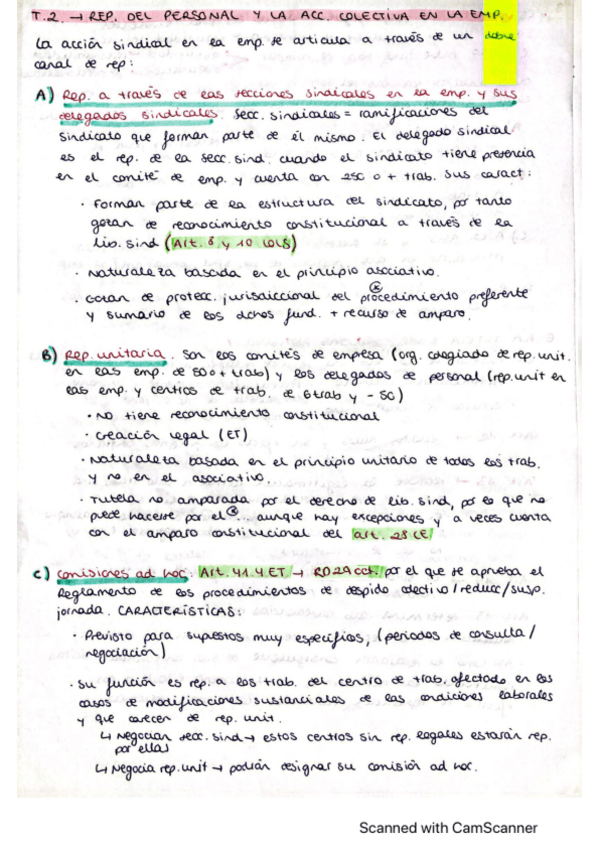 T.2. → REP. DEL PERSONAL Y LA ACC. COLECTIVA EN LA EMP.
La acción sindical en la emp. se articula a través de un doble
canal de rep:
A) Rep. a través de las secciones sindicales en la emp. y sus
delegados sindicales. Secc. sindicales = ramificaciones del
sindicato que forman parte de él mismo. El delegado sindical
es el rep. de la secc. sind. cuando el sindicato tiene presencia
en el comité de emp. y cuenta con 250 o + trab. Sus caract:
· Forman parte de la estructura del sindicato, por tanto
gozan de reconocimiento constitucional a través de la
lib. sind (Art. 8 y 10 LOLS)
· Naturaleza basada en el principio asociativo.
· Gozan de protecc. jurisdiccional del procedimiento preferente
y sumario de los dchos fund. + recurso de amparo.
B) Rep. unitaria. Son los comités de empresa (org. colegiado de rep. unit.
en las emp. de 50 o + trab) y los delegados de personal (rep. unit en
las emp. y centros de trab. de 6 trab y - 50)
· No tiene reconocimiento constitucional
· Creación legal (ET)
· Naturaleza basada en el principio unitario de todos los trab.
y no en el asociativo.
· Tutela no amparada por el derecho de lib. sind, por lo que no
puede hacerse por el * ... aunque hay excepciones y a veces cuenta
con el amparo constitucional del art. 28 CE
C) Comisiones ad hoc: Art. 41.4 ET → RD 29 oct. por el que se aprueba el
Reglamento de los procedimientos de despido colectivo / reducc/susp.
jornada. CARACTERÍSTICAS:
· Previsto para supuestos muy específicos, (periodos de consulta /
negociación)
· Su función es rep. a los trab. del centro de trab. afectado en los
casos de modificaciones sustanciales de las condiciones laborales
y que carecen de rep. unit.
↳ Negocian secc. sind → estos centros sin rep. legales estarán rep.
por ellas
↳ Negocia rep. unit → podrán designar su comisión ad hoc.
Scanned with CamScanner